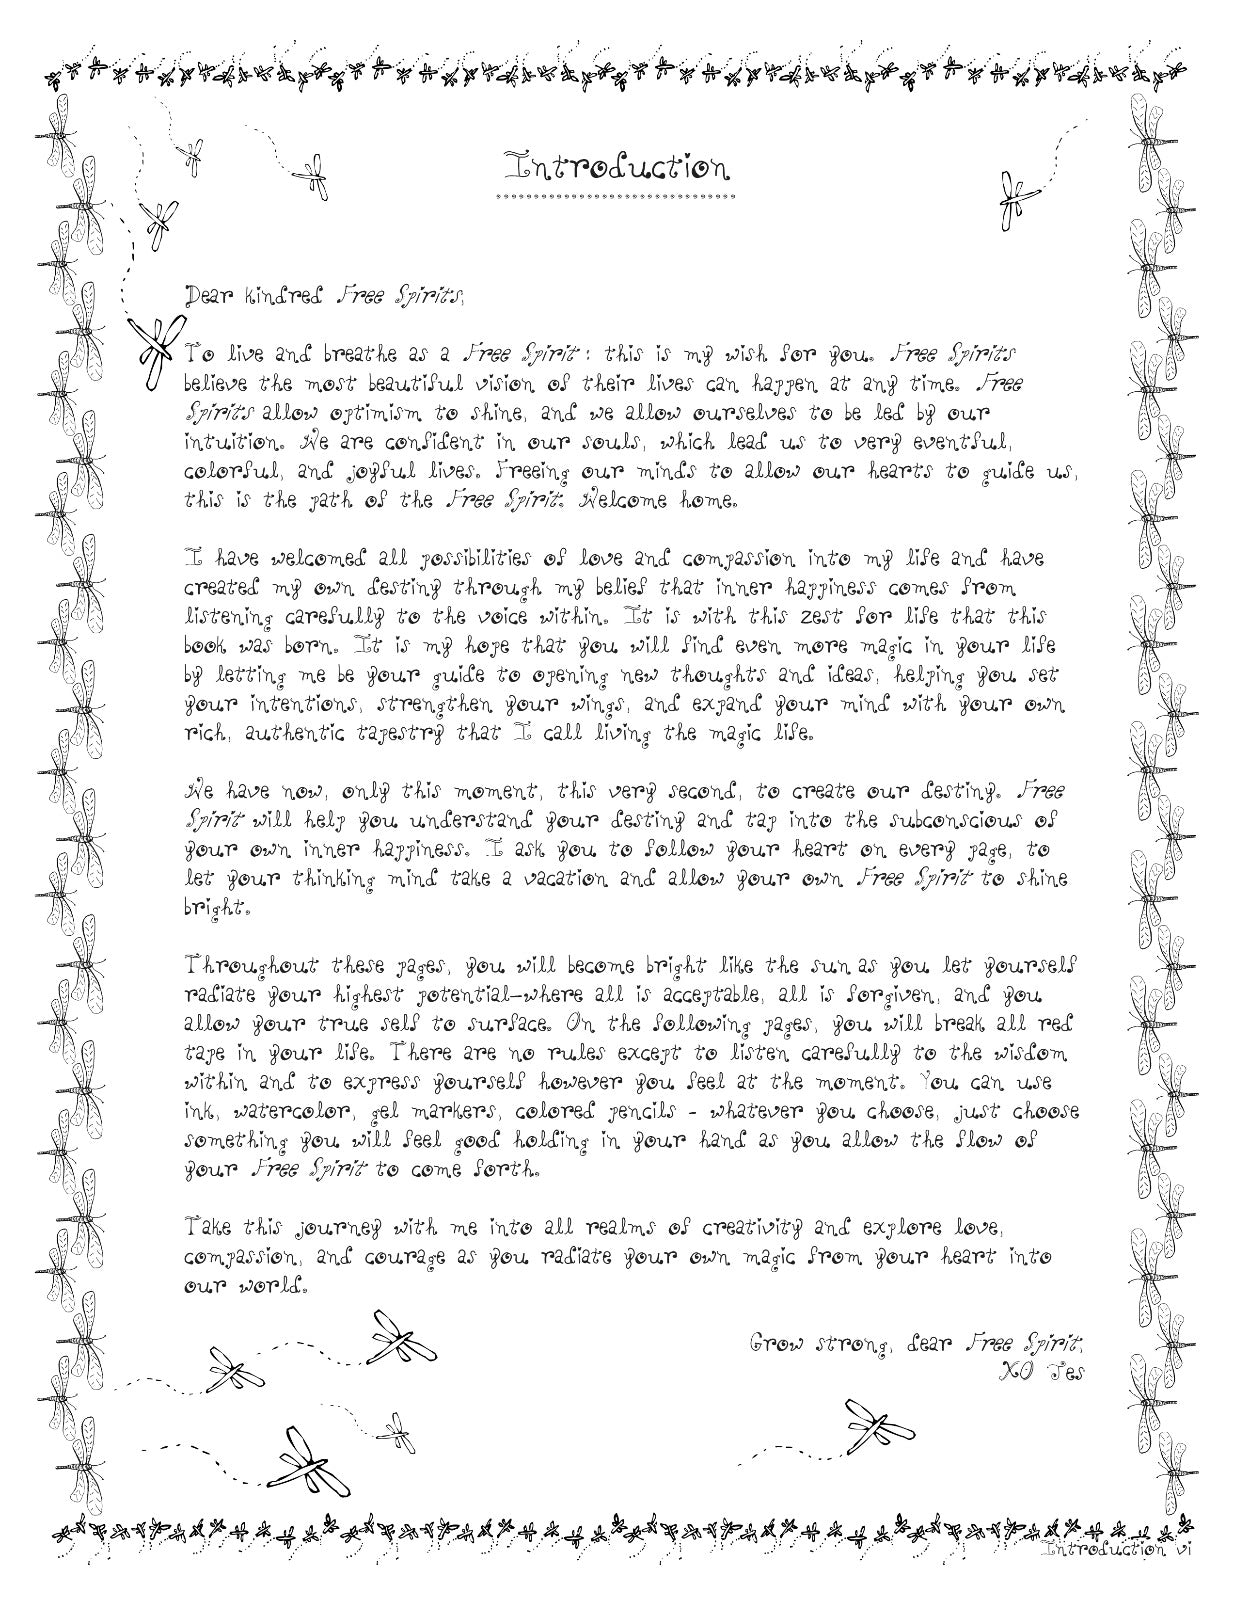 Introduction
Dear Kindred Free Spirits,
To live and breathe as a Free Spirit: this is my wish for you. Free Spirits
believe the most beautiful vision of their lives can happen at any time. Free
Spirits allow optimism to shine, and we allow ourselves to be led by our
intuition. We are confident in our souls, which lead us to very eventful,
colorful, and joyful lives. Freeing our minds to allow our hearts to guide us,
this is the path of the Free Spirit. Welcome home.
I have welcomed all possibilities of love and compassion into my life and have
created my own destiny through my belief that inner happiness comes from
listening carefully to the voice within. It is with this zest for life that this
book was born. It is my hope that you will find even more magic in your life
by letting me be your guide to opening new thoughts and ideas, helping you set
your intentions, strengthen your wings, and expand your mind with your own
rich, authentic tapestry that I call living the magic life.
We have now, only this moment, this very second, to create our destiny. Free
Spirit will help you understand your destiny and tap into the subconscious of
your own inner happiness. I ask you to follow your heart on every page, to
let your thinking mind take a vacation and allow your own Free Spirit to shine
bright.
Throughout these pages, you will become bright like the sun as you let yourself
radiate your highest potential—where all is acceptable, all is forgiven, and you
allow your true self to surface. On the following pages, you will break all red
tape in your life. There are no rules except to listen carefully to the wisdom
within and to express yourself however you feel at the moment. You can use
ink, watercolor, gel markers, colored pencils - whatever you choose, just choose
something you will feel good holding in your hand as you allow the flow of
your Free Spirit to come forth.
Take this journey with me into all realms of creativity and explore love,
compassion, and courage as you radiate your own magic from your heart into
our world.
Grow strong, dear Free Spirit,
XO Jes
Introduction vi